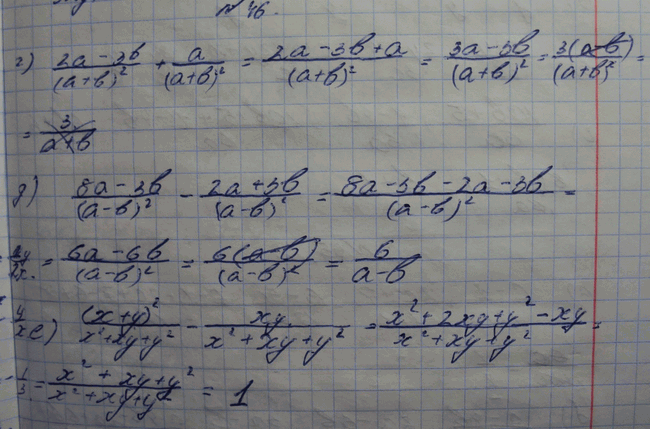 № 46.
г) (2a - 3b)/(a+b)² + a/(a+b)² = (2a - 3b + a)/(a+b)² = (3a - 3b)/(a+b)² = 3(a-b)/(a+b)² =
= 3/(a+b)
д) (8a - 3b)/(a-b)² - (2a + 3b)/(a-b)² = (8a - 3b - 2a - 3b)/(a-b)² =
= (6a - 6b)/(a-b)² = 6(a-b)/(a-b)² = 6/(a-b)
е) (x+y)²/(x²+xy+y²) - xy/(x²+xy+y²) = (x²+2xy+y²-xy)/(x²+xy+y²) =
= (x²+xy+y²)/(x²+xy+y²) = 1